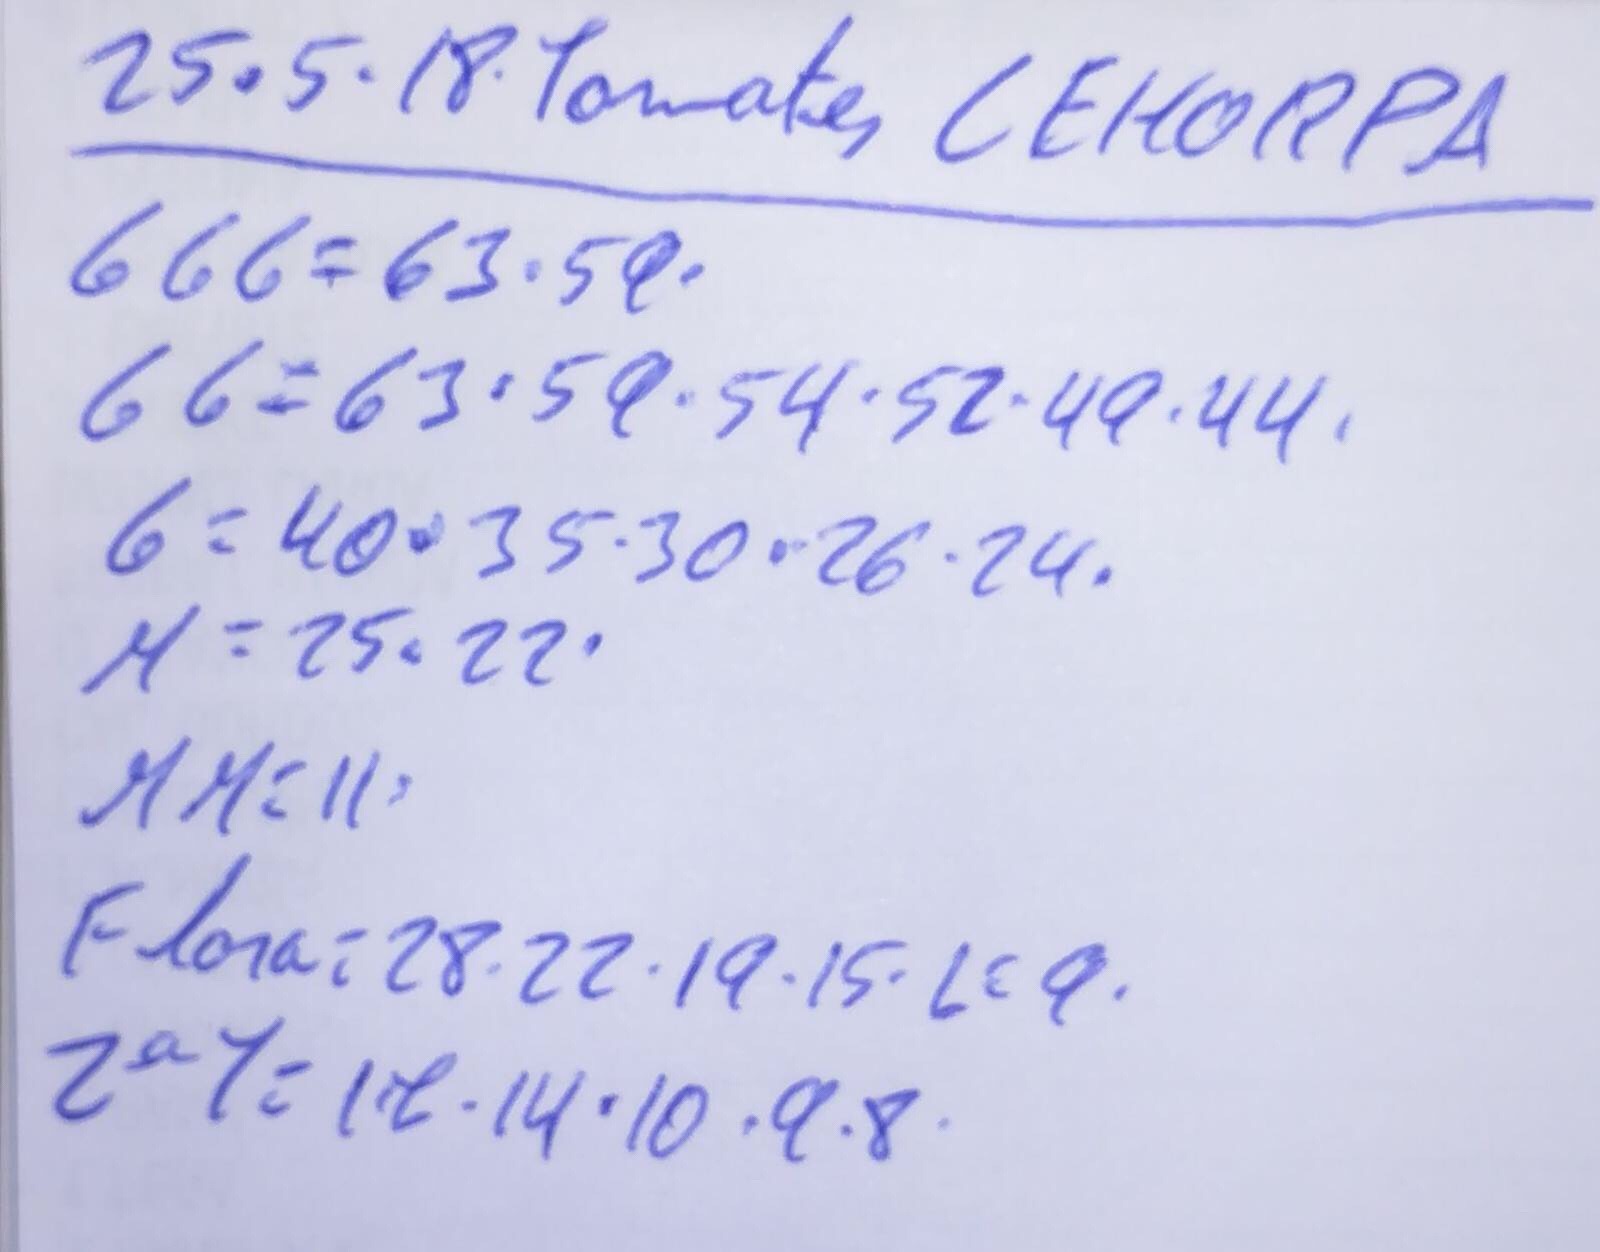 25.5.18. Tomates CEHORPA
GGG=63.59.
GG=63.59.54.52.49.44.
G=40.35.30.26.24.
M=25.22.
MM=11.
Flora=28.22.19.15.L=9.
2ªY= .14.10.9.8.